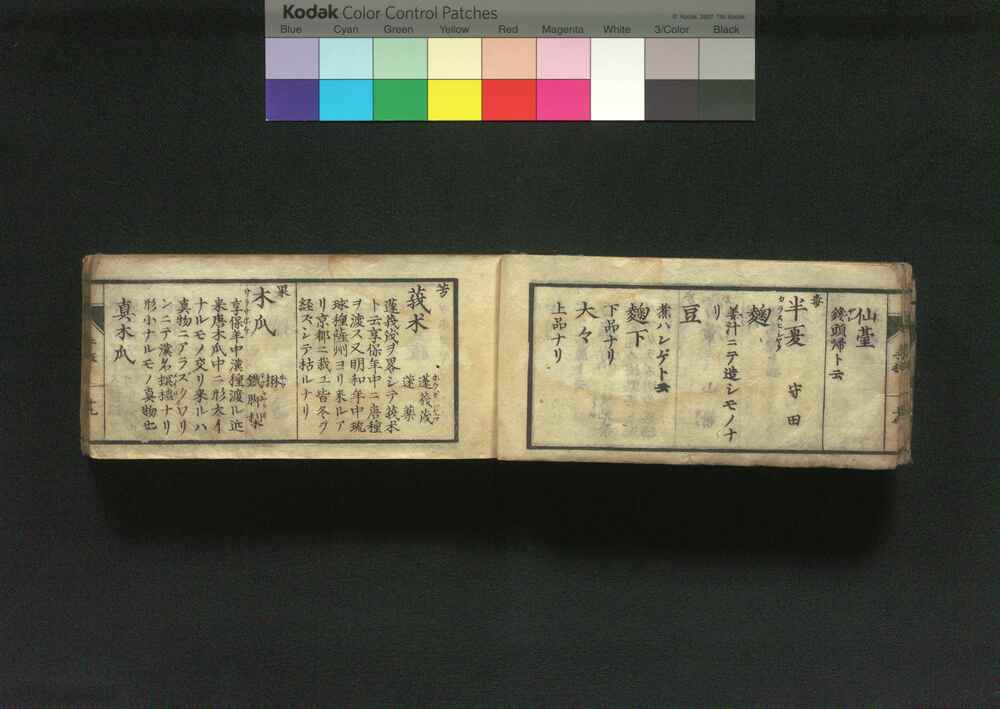 Kodak Color Control Patches
© Kodak, 2007 TM: Kodak
Blue Cyan Green Yellow Red Magenta White 3/Color Black
仙臺
饅頭帰ト云
毒
半夏 守田
カラスビシャク
麹
姜汁ニテ造シモノナ
リ
豆
葉ハンゲト云
麹下
下品ナリ
大々
上品ナリ
芳
莪朮
蓬莪茂
蓬薬
蓬莪茂ヲ畧シテ莪朮
ト云享保年中ニ唐種
ヲ渡ス又明和年中琉
球種薩州ヨリ來ルア
リ京都ニ栽ユ皆冬ヲ
経スシテ枯ルナリ
果
木瓜
楙
鐵脚梨
享保年中漢種渡ル近
來唐木瓜中ニ形大イ
ナルモノ交リ來ルハ
真物ニアラスクワリ
ンニテ漢名榠樝ナリ
形小ナルモノ真物也
真木瓜